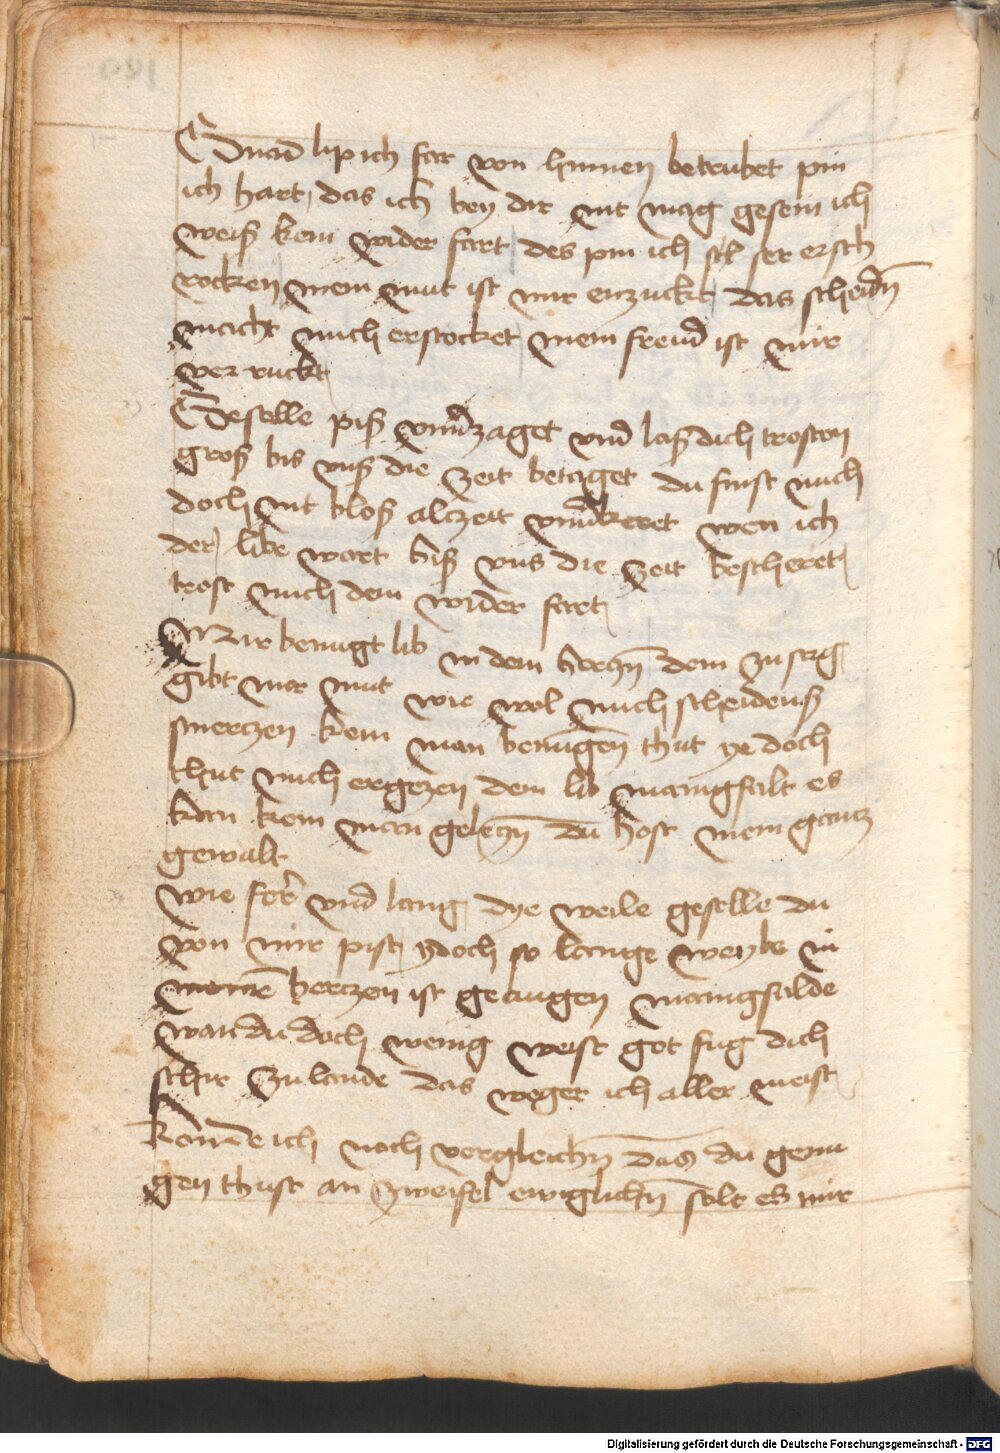 Gnad lip ich far von hinnen betrubet pin
ich hart das ich bey dir nit mag gesein ich
weiß kein wider fart des pin ich so ser ersch
rocken mein mut ist mir enzuckt das scheidn̄
macht mich erstocket mein freud ist mir
ver ruckt
Geselle piß vnuerzaget vnd laß dich trosten
groß bis vnß die zeit betaget du finst mich
doch nit bloß alczeit vnuerkeret wen ich
der libe wart biß vns die zeit bescheret
trost mich dein wider fart
Mir benugt lib in dem herczn̄ dein zusag
gibt mir mut wie wol mich scheidenß
smerczen kein man benugen thut ye doch
thut mich ergezen dein lib manigfalt es
kan kein man geleczn̄ du host mein gancz
gewalt
wie fer vnd lang dye weile geselle du
von mir pist ydoch so lange weyle in
meinē herczen ist gefangen manigfalde
wan du doch wenig weist got fug dich
schir zu lande das weger ich aller meist
Konde ich noch vergleichn̄ das du genu
gen thust an zweifel ewiglichn̄ solt es mir
Digitalisierung gefördert durch die Deutsche Forschungsgemeinschaft - DFG